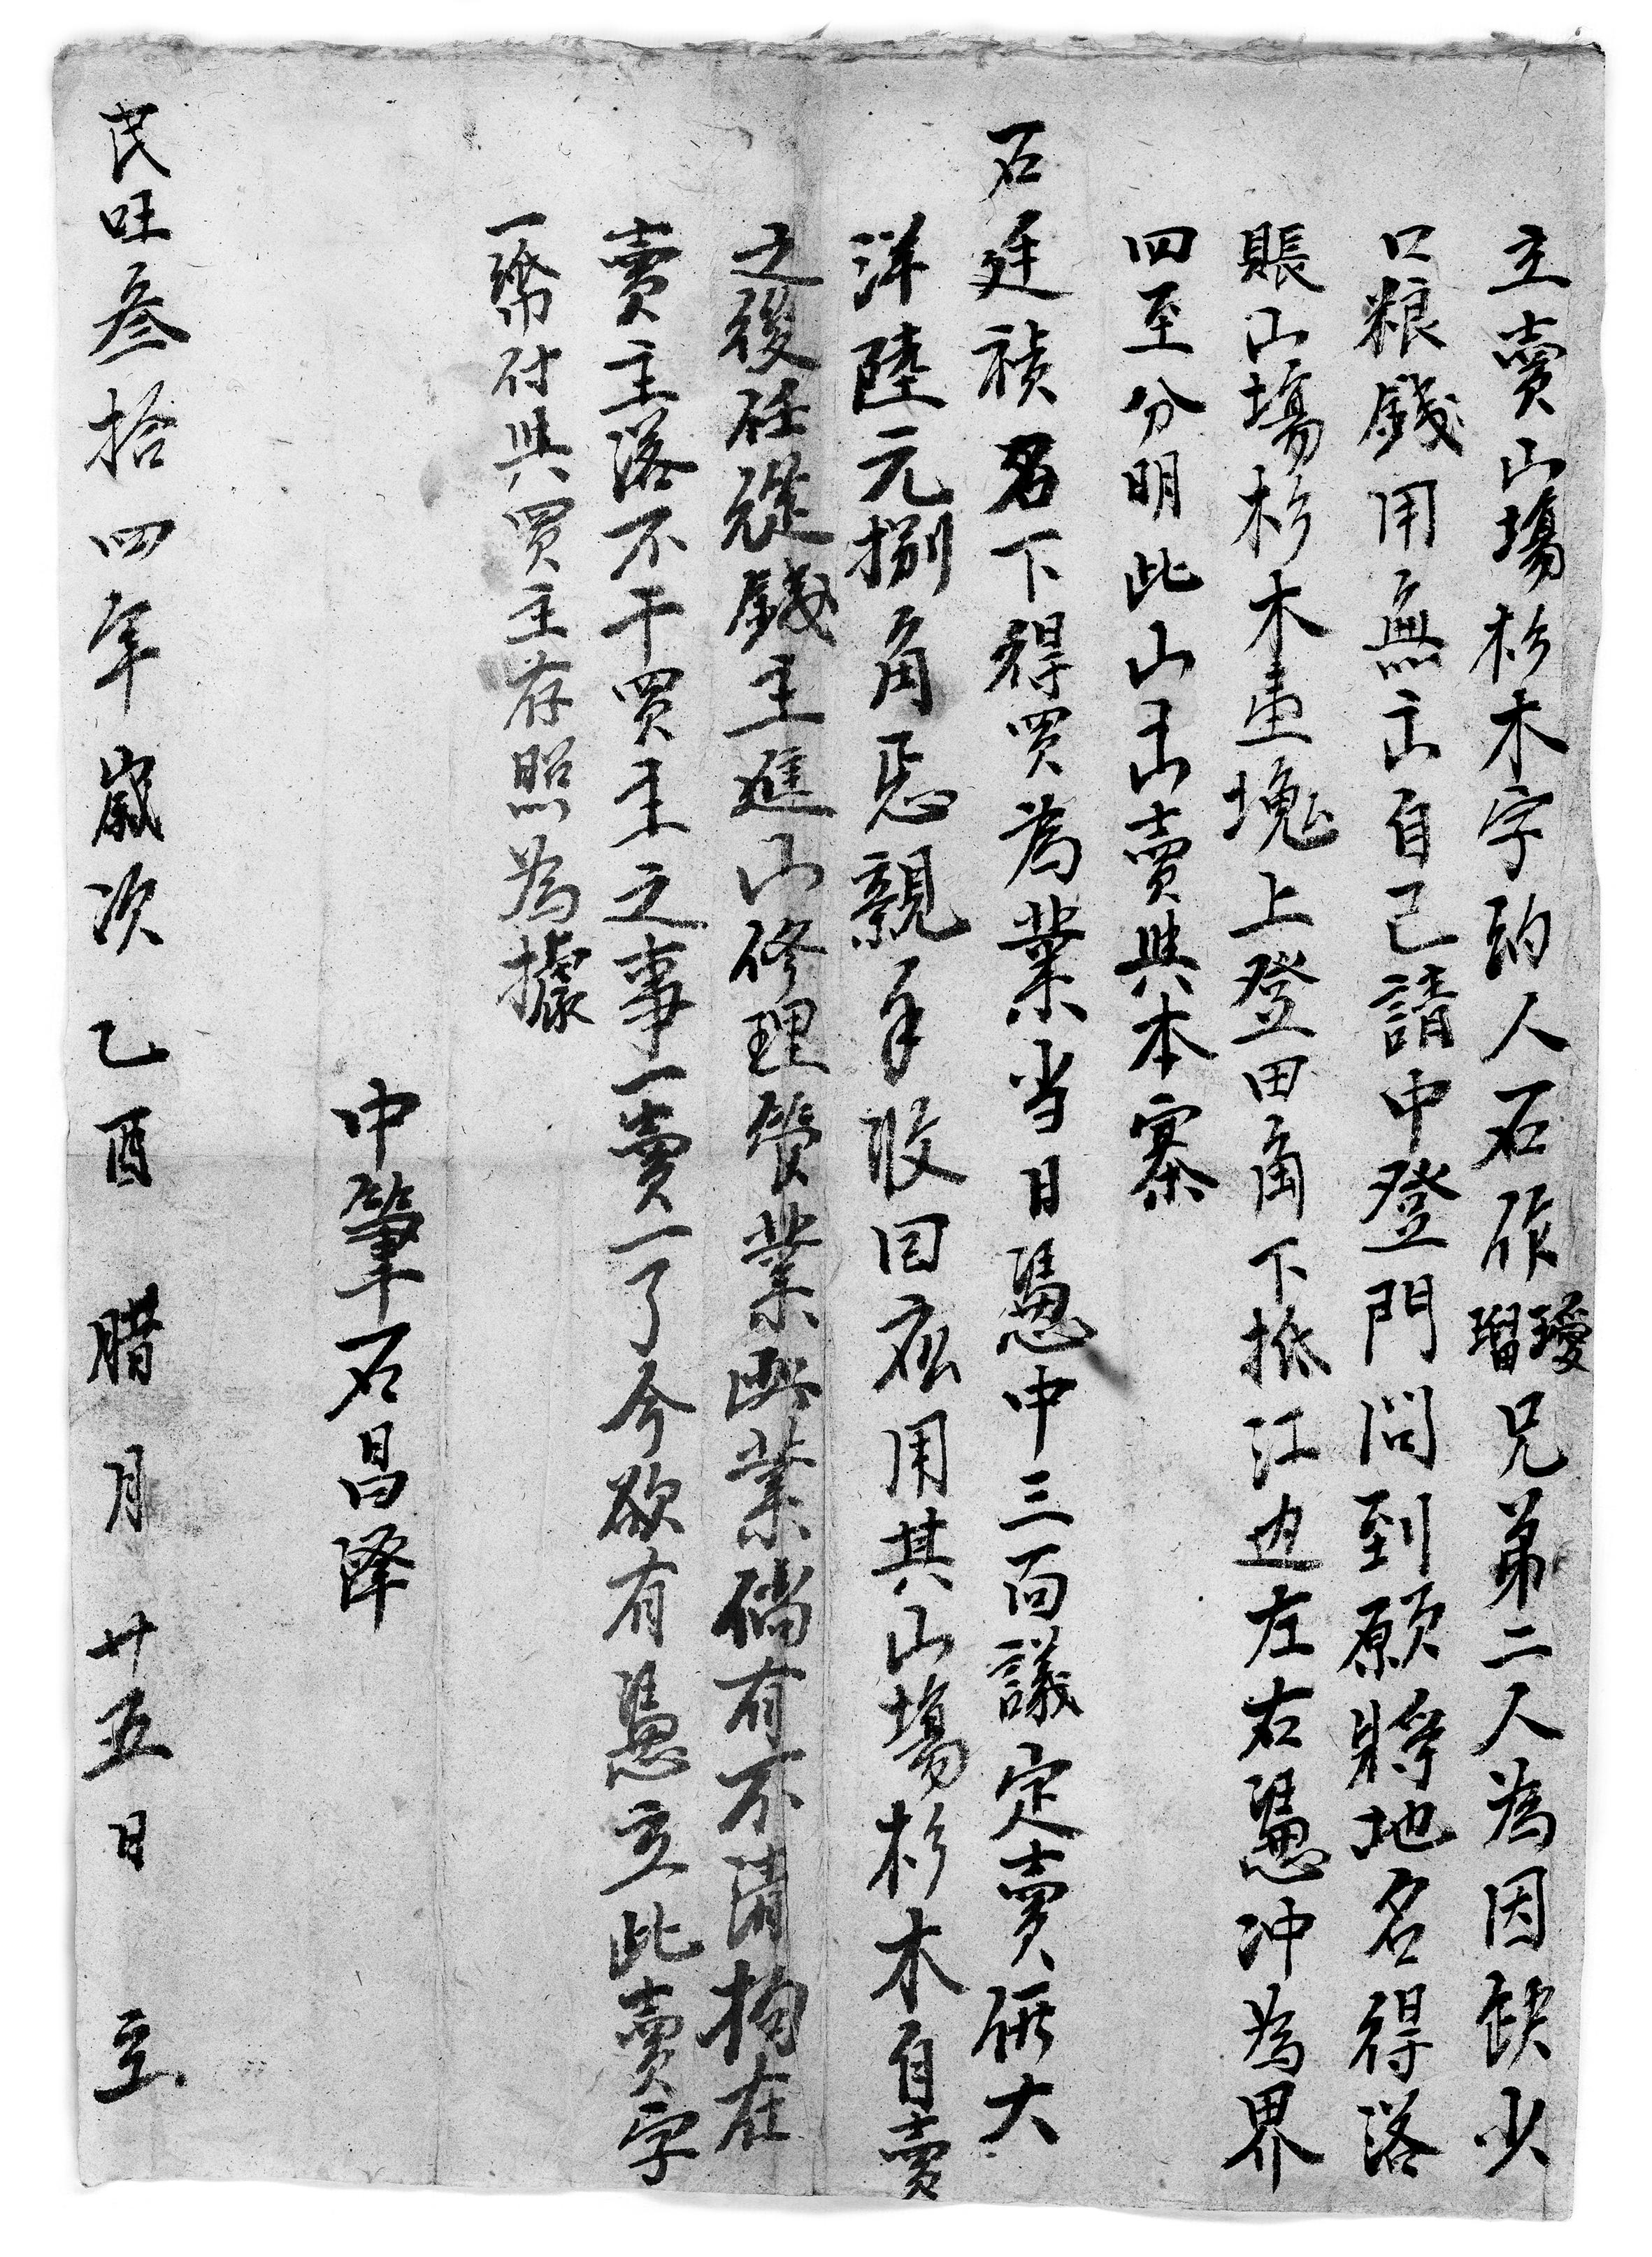 立賣山塲杉木字約人石作瓊瑠兄弟二人為因缺少
口粮錢用無出自己請中登門問到願將地名得落
賬山塲杉木壹塊上登田角下抵江边左右憑冲為界
四至分明此山出賣與本寨
石廷禎名下得買為業当日憑中三面議定賣價大
洋陸元捌角親手收回應用其山塲杉木自賣
之後任從錢主進山修理管業倘有不清拘在
賣主落不干買主之事一賣一了今欲有憑立此賣字
一帋付與買主存照為據
中筆石昌泽
民国叁拾四年歲次乙酉腊月廿五日立